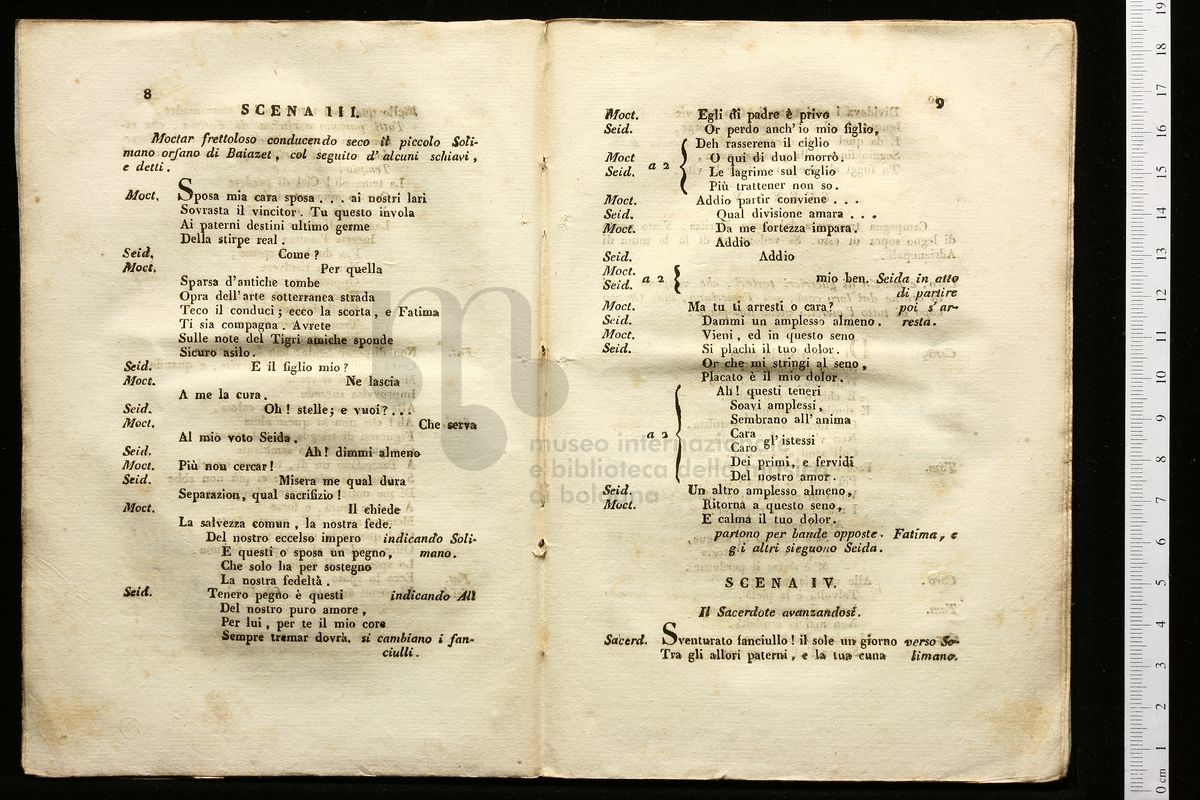 8
SCENA III.
Moctar frettoloso conducendo seco il piccolo Soli-
mano orfano di Baiazet, col seguito d'alcuni schiavi,
e detti.
Moct. Sposa mia cara sposa . . . ai nostri lari
Sovrasta il vincitor. Tu questo invola
Ai paterni destini ultimo germe
Della stirpe real.
Seid. Come?
Moct. Per quella
Sparsa d'antiche tombe
Opra dell'arte sotterranea strada
Teco il conduci; ecco la scorta, e Fatima
Ti sia compagna. Avrete
Sulle note del Tigri amiche sponde
Sicuro asilo.
Seid. E il figlio mio?
Moct. Ne lascia
A me la cura.
Seid. Oh! stelle; e vuoi? . . .
Moct. Che serva
Al mio voto Seida.
Seid. Ah! dimmi almeno
Moct. Più non cercar!
Seid. Misera me qual dura
Separazion, qual sacrifizio!
Moct. Il chiede
La salvezza comun, la nostra fede.
Del nostro eccelso impero indicando Soli-
E questi o sposa un pegno, mano.
Che solo ha per sostegno
La nostra fedeltà.
Seid. Tenero pegno è questi indicando Alì
Del nostro puro amore,
Per lui, per te il mio core
Sempre tremar dovrà. si cambiano i fan-
ciulli.
9
Moct. Egli di padre è privo
Seid. Or perdo anch'io mio figlio,
Deh rasserena il ciglio
Moct O qui di duol morrò.
a 2
Seid. Le lagrime sul ciglio
Più trattener non so.
Moct. Addio partir conviene . . .
Seid. Qual divisione amara . . .
Moct. Da me fortezza impara.
Addio
Seid. Addio
Moct.
a 2 mio ben. Seida in atto
Seid. di partire
Moct. Ma tu ti arresti o cara? poi s'ar-
Seid. Dammi un amplesso almeno. resta.
Moct. Vieni, ed in questo seno
Seid. Si plachi il tuo dolor.
Or che mi stringi al seno,
Placato è il mio dolor.
Ah! questi teneri
Soavi amplessi,
Sembrano all'anima
a 2 Cara
Caro gl'istessi
Dei primi, e fervidi
Del nostro amor.
Seid. Un altro amplesso almeno,
Moct. Ritorna a questo seno,
E calma il tuo dolor.
partono per bande opposte. Fatima, e
gli altri sieguono Seida.
SCENA IV.
Il Sacerdote avanzandosi.
Sacerd. Sventurato fanciullo! il sole un giorno verso So-
Tra gli allori paterni, e la tua cuna limano.
museo internazionale
e biblioteca della musica
di bologna
0 cm 1 2 3 4 5 6 7 8 9 10 11 12 13 14 15 16 17 18 19